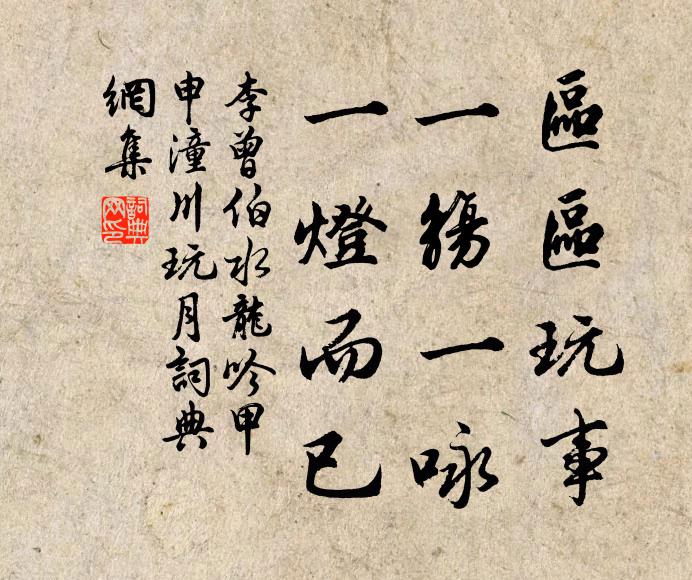 區區玩事
一觴一咏
一燈而已
李曾伯水龍吟甲
申潼川玩月詞典
網集
詞典
网印